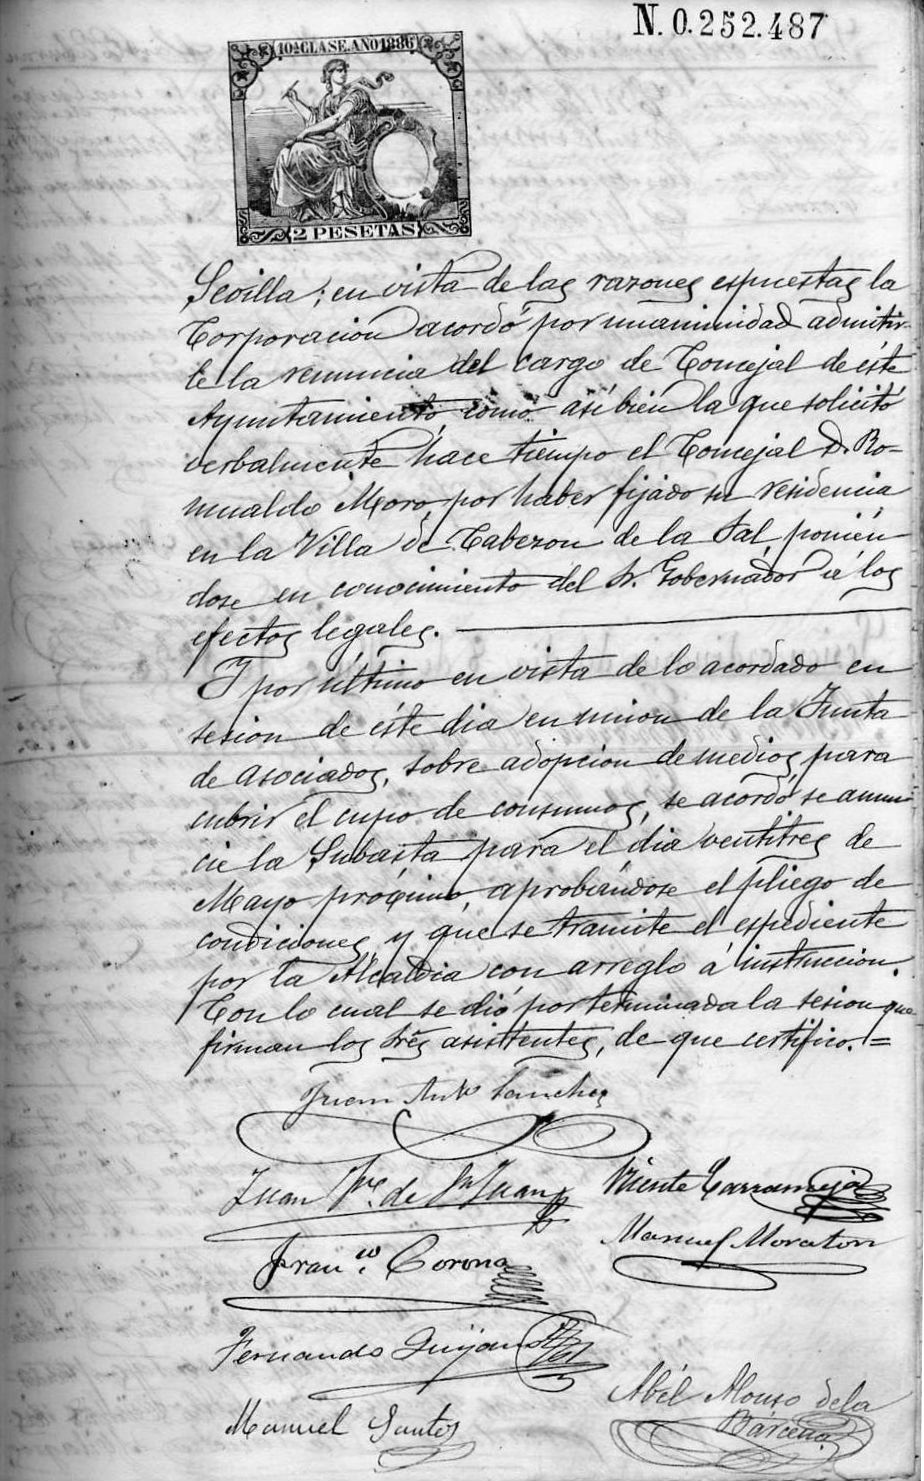 N. 0.252.487
10ª CLASE. AÑO 1886
2 PESETAS
Sevilla; en vista de las razones espuestas la
Corporacion acordó por unanimidad admitir-
le la renuncia del cargo de Concejal de éste
Ayuntamiento, como asi bien la que solicitó
verbalmente hace tiempo el Concejal D. Ro-
mualdo Moro, por haber fijado su residencia
en la Villa de Cabezon de la Sal, ponien-
dose en conocimiento del Sr. Gobernador á los
efectos legales.
Y por último en vista de lo acordado en
sesion de éste dia en union de la Junta
de asociados, sobre adopcion de medios para
cubrir el cupo de consumos, se acordó se anun-
cie la Subasta para el dia ventitres de
Mayo próximo, aprobándose el pliego de
condiciones y que se tramite el espediente
por la Alcaldia con arreglo á instruccion.
Con lo cual se dió por terminada la sesion que
firman los Sres asistentes, de que certifico.=
Juan Antº Sanchez
Juan de Sn Juan
Vicente
Franco. Corona
Manuel Moraton
Fernando Quijano
Abél Alonso de la
Bárcena
Manuel Santos